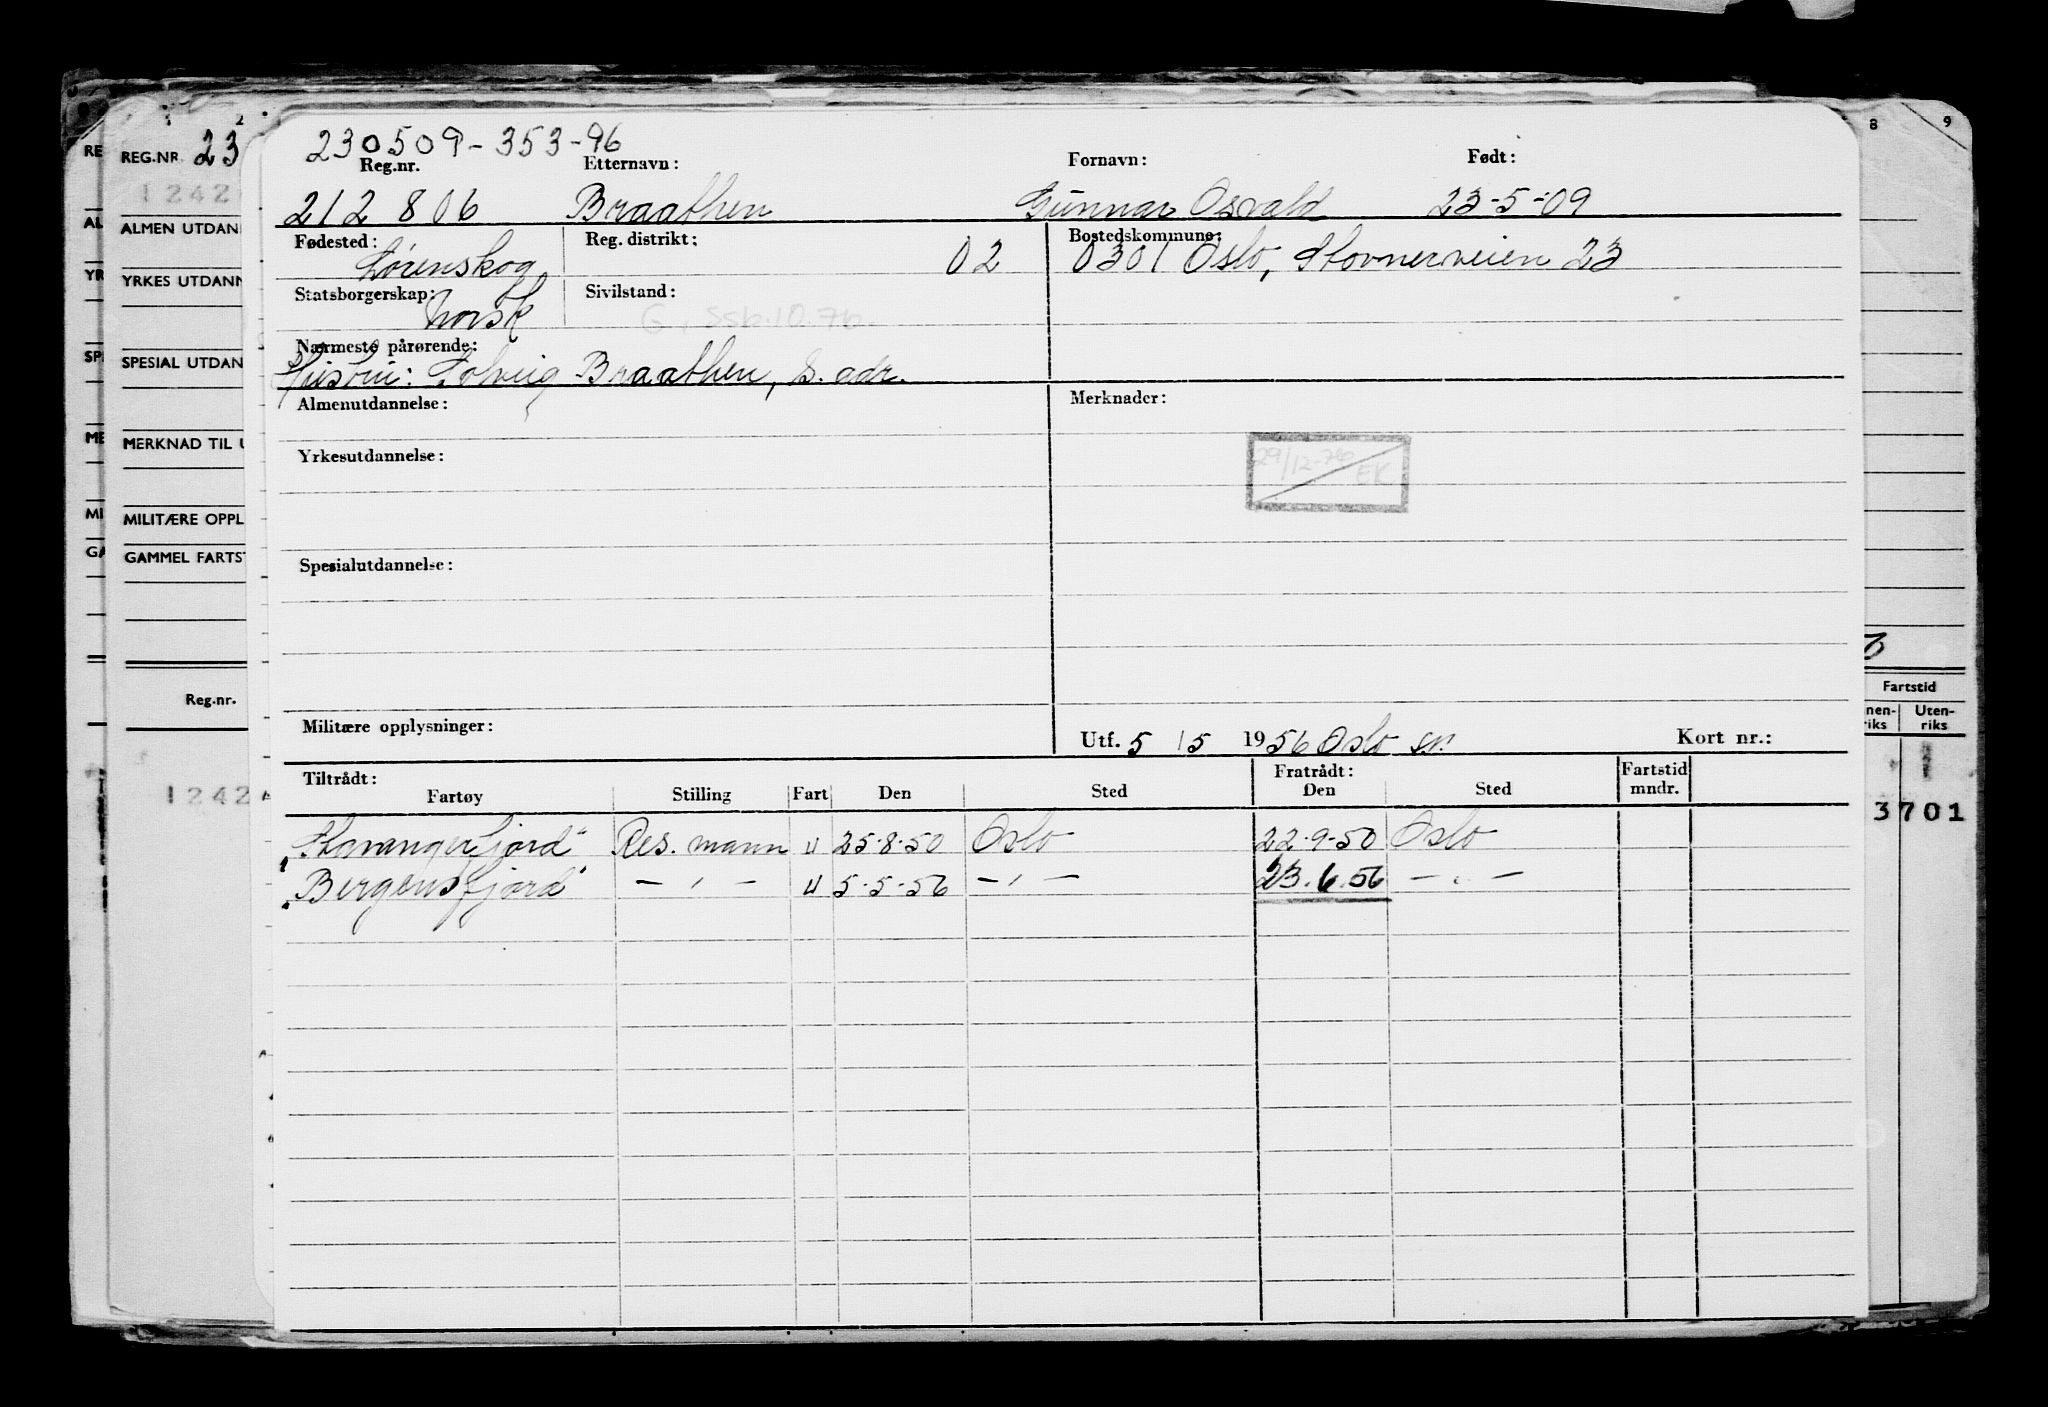 230509-353-96
Reg.nr. Etternavn: Fornavn: Født:
212 806 Braathen Gunnar Osvald 23-5-09
Fødested: Reg. distrikt: Bostedskommune:
Lørenskog 02 0301 Oslo, Stovnerveien 23
Statsborgerskap: Sivilstand:
Norsk G, ssb.10.76.
Nærmeste pårørende:
Hustru: Solveig Braathen, s. adr.
Almenutdannelse: Merknader:
29/12-76 EK
Yrkesutdannelse:
Spesialutdannelse:
Militære opplysninger: Utf. 5 / 5 1956 Oslo s.r. Kort nr.:
Tiltrådt: Fratrådt: Fartstid
Fartøy Stilling Fart Den Sted Den Sted mndr.
"Stavangerfjord" Res. mann U 25-8-50 Oslo 22-9-50 Oslo
"Bergensfjord" — " — U 5-5-56 — " — 23.6.56 — " —
1 2
REG.NR. 23
1242
ALMEN UTDAN
YRKES UTDANN
SPESIAL UTDAN
MERKNAD TIL U
MILITÆRE OPPL
GAMMEL FARTST
Reg.nr.
1242
RE
AL
YR
SP
ME
MI
GA
8 9
Fartstid
nen-riks Uten-riks
3701